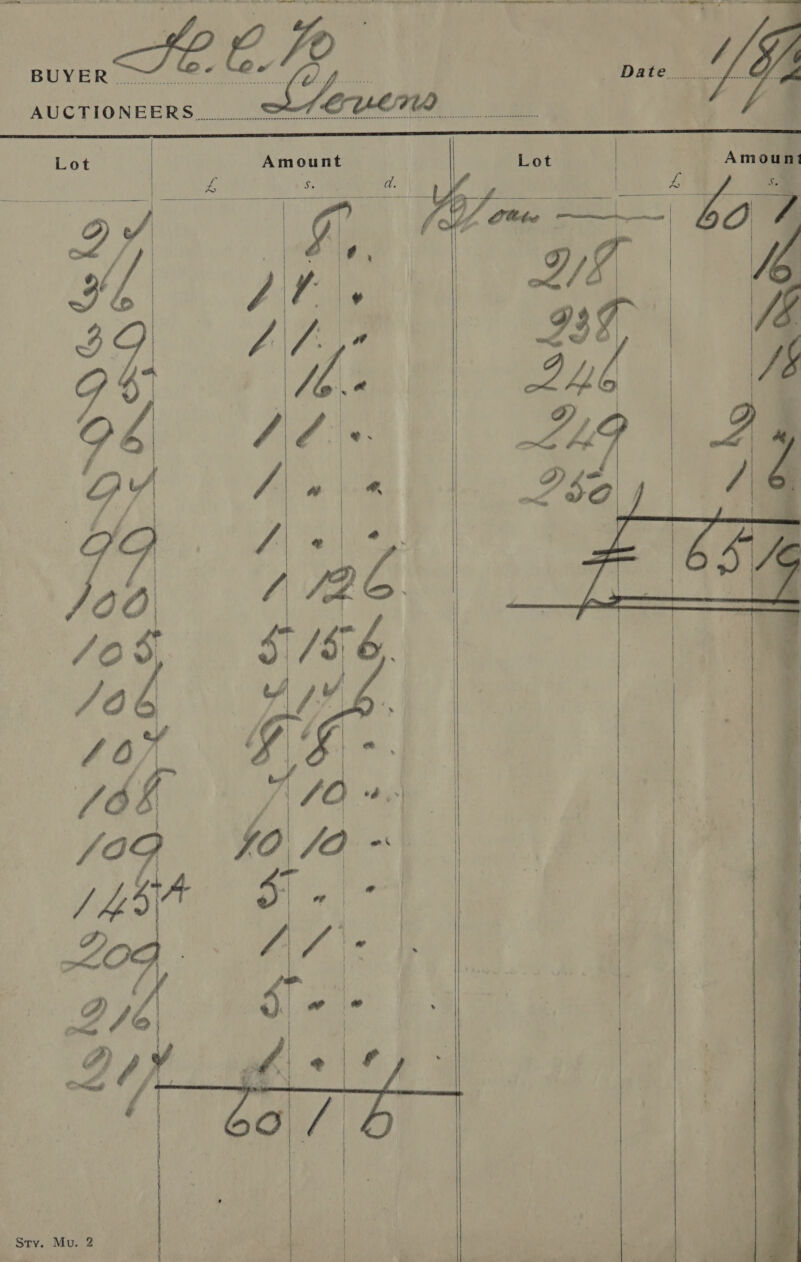 BUYER H. C. Jo
Date 1/8/
AUCTIONEERS Stevens
Lot Amount Lot Amount
£ s. d. £ s.
27 8 . . Forward 60 1
36 1 8 . 218 16
39 1 1 . 238 18
95 16 . 246 18
96 1 1 . 249 2 .
97 1 . . 250 1 6
99 1 . . £ 65 19
100 1 12 6
105 5 15 6
106 7 17 6
107 8 8 .
108 7 10 .
109 10 10 .
145A 5 . .
209 1 1 .
216 5 . .
217 1 . .
60 1 6
Sty. Mu. 2